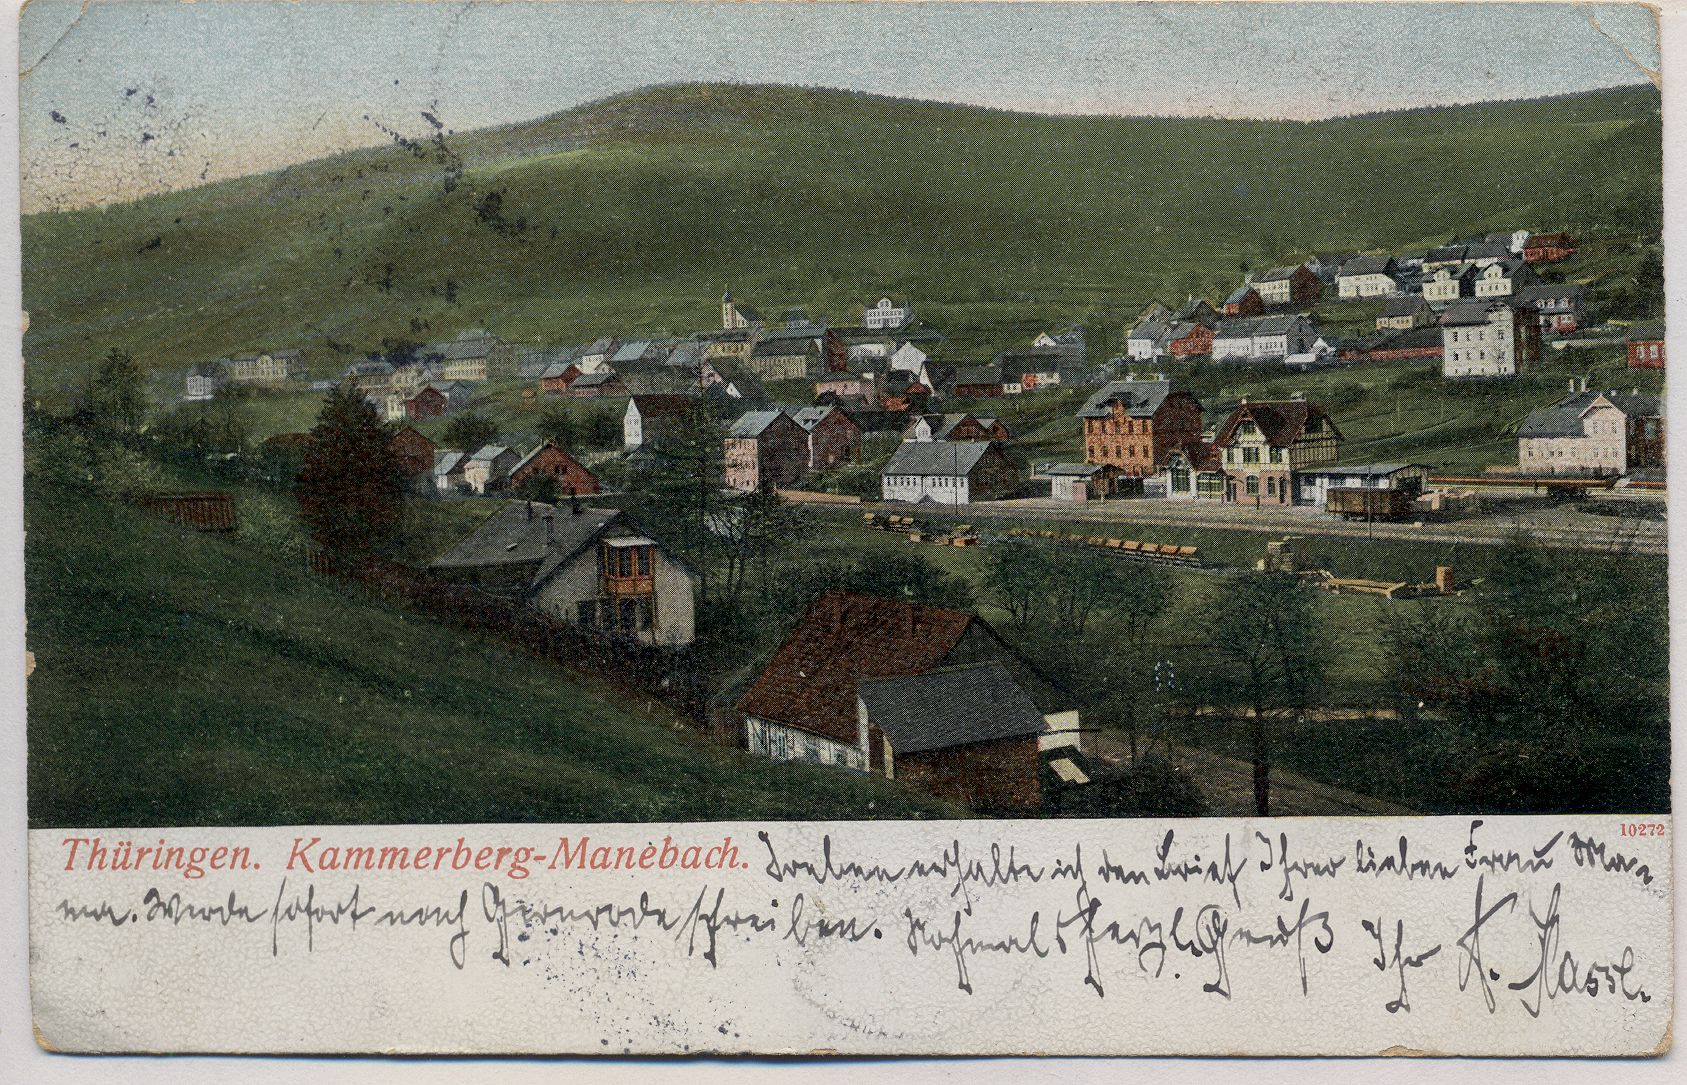 10272
Thüringen. Kammerberg-Manebach. Soeben erhalte ich den Brief Ihrer lieben Frau Ma-
ma. Werde sofort nach Gernrode schreiben. Nochmals herzl. Gruß Ihr